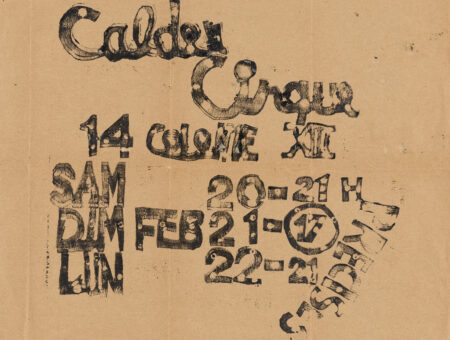 Calder
Cirque
14 COLONIE XIII
SAM 20-21 H
DIM FEB 21-17
LUN 22-21
PRECISES